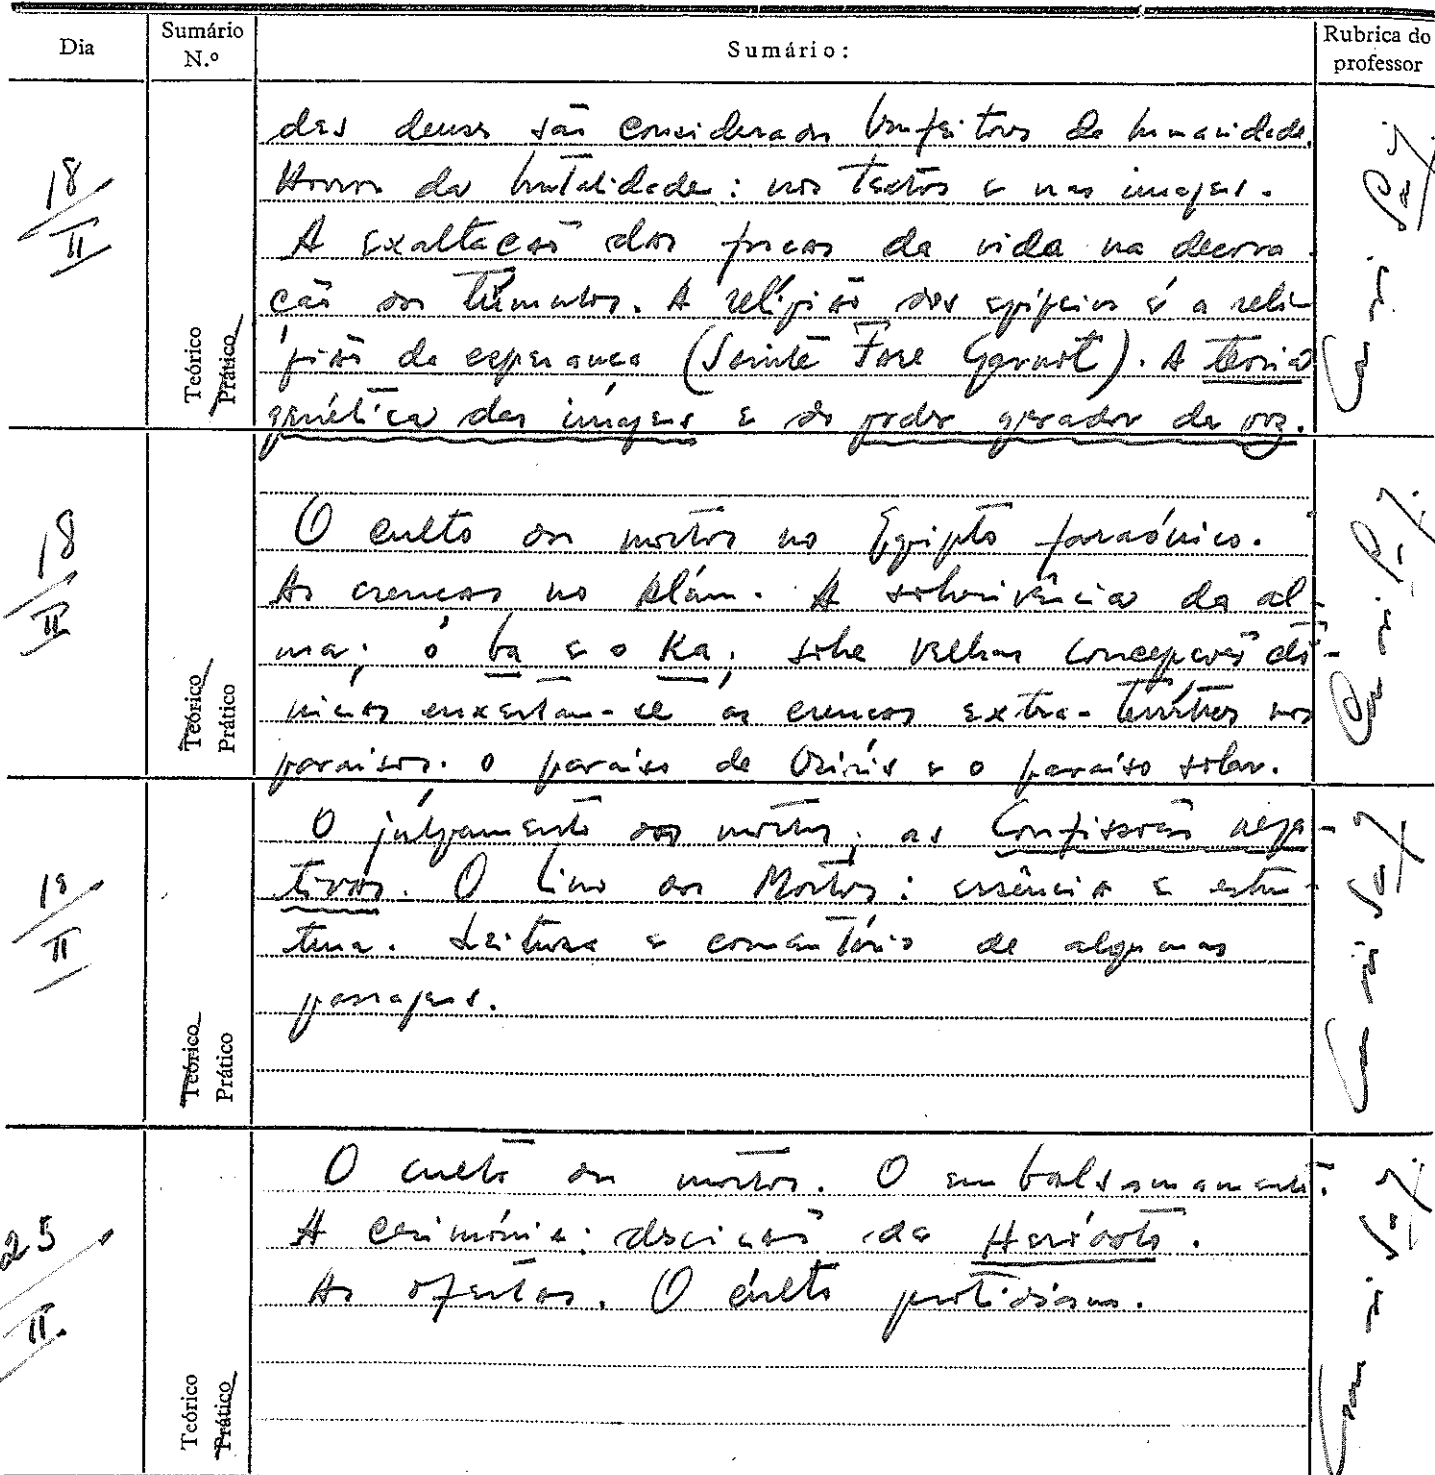 Dia
Sumário N.º
Sumário:
Rubrica do professor
18/II
Teórico
Prático
das deuses são considerados benfeitores da humanidade.
Horror da brutalidade: nos textos e nas imagens.
A exaltação das forças da vida na decora-
ção dos túmulos. A religião dos egípcios é a reli-
gião da esperança (Sainte Fare Garnot). A teoria
genética das imagens e do poder gerador da voz.
18/II
Teórico
Prático
O culto dos mortos no Egipto faraónico.
As crenças no Além. A sobrevivência da al-
ma; o ba e o Ka; sobre velhas concepções
enxertam-se as crenças extra-terrestres nos
paraísos. o paraíso de Osíris e o paraíso solar.
19/II
Teórico
Prático
O julgamento dos mortos; as Confissões nega-
tivas. O Livro dos Mortos: essência e estru-
tura. Leitura e comentário de algumas
passagens.
25/II.
Teórico
Prático
O culto dos mortos. O embalsamamento.
A cerimónia: descrição de Heródoto.
As ofertas. O culto